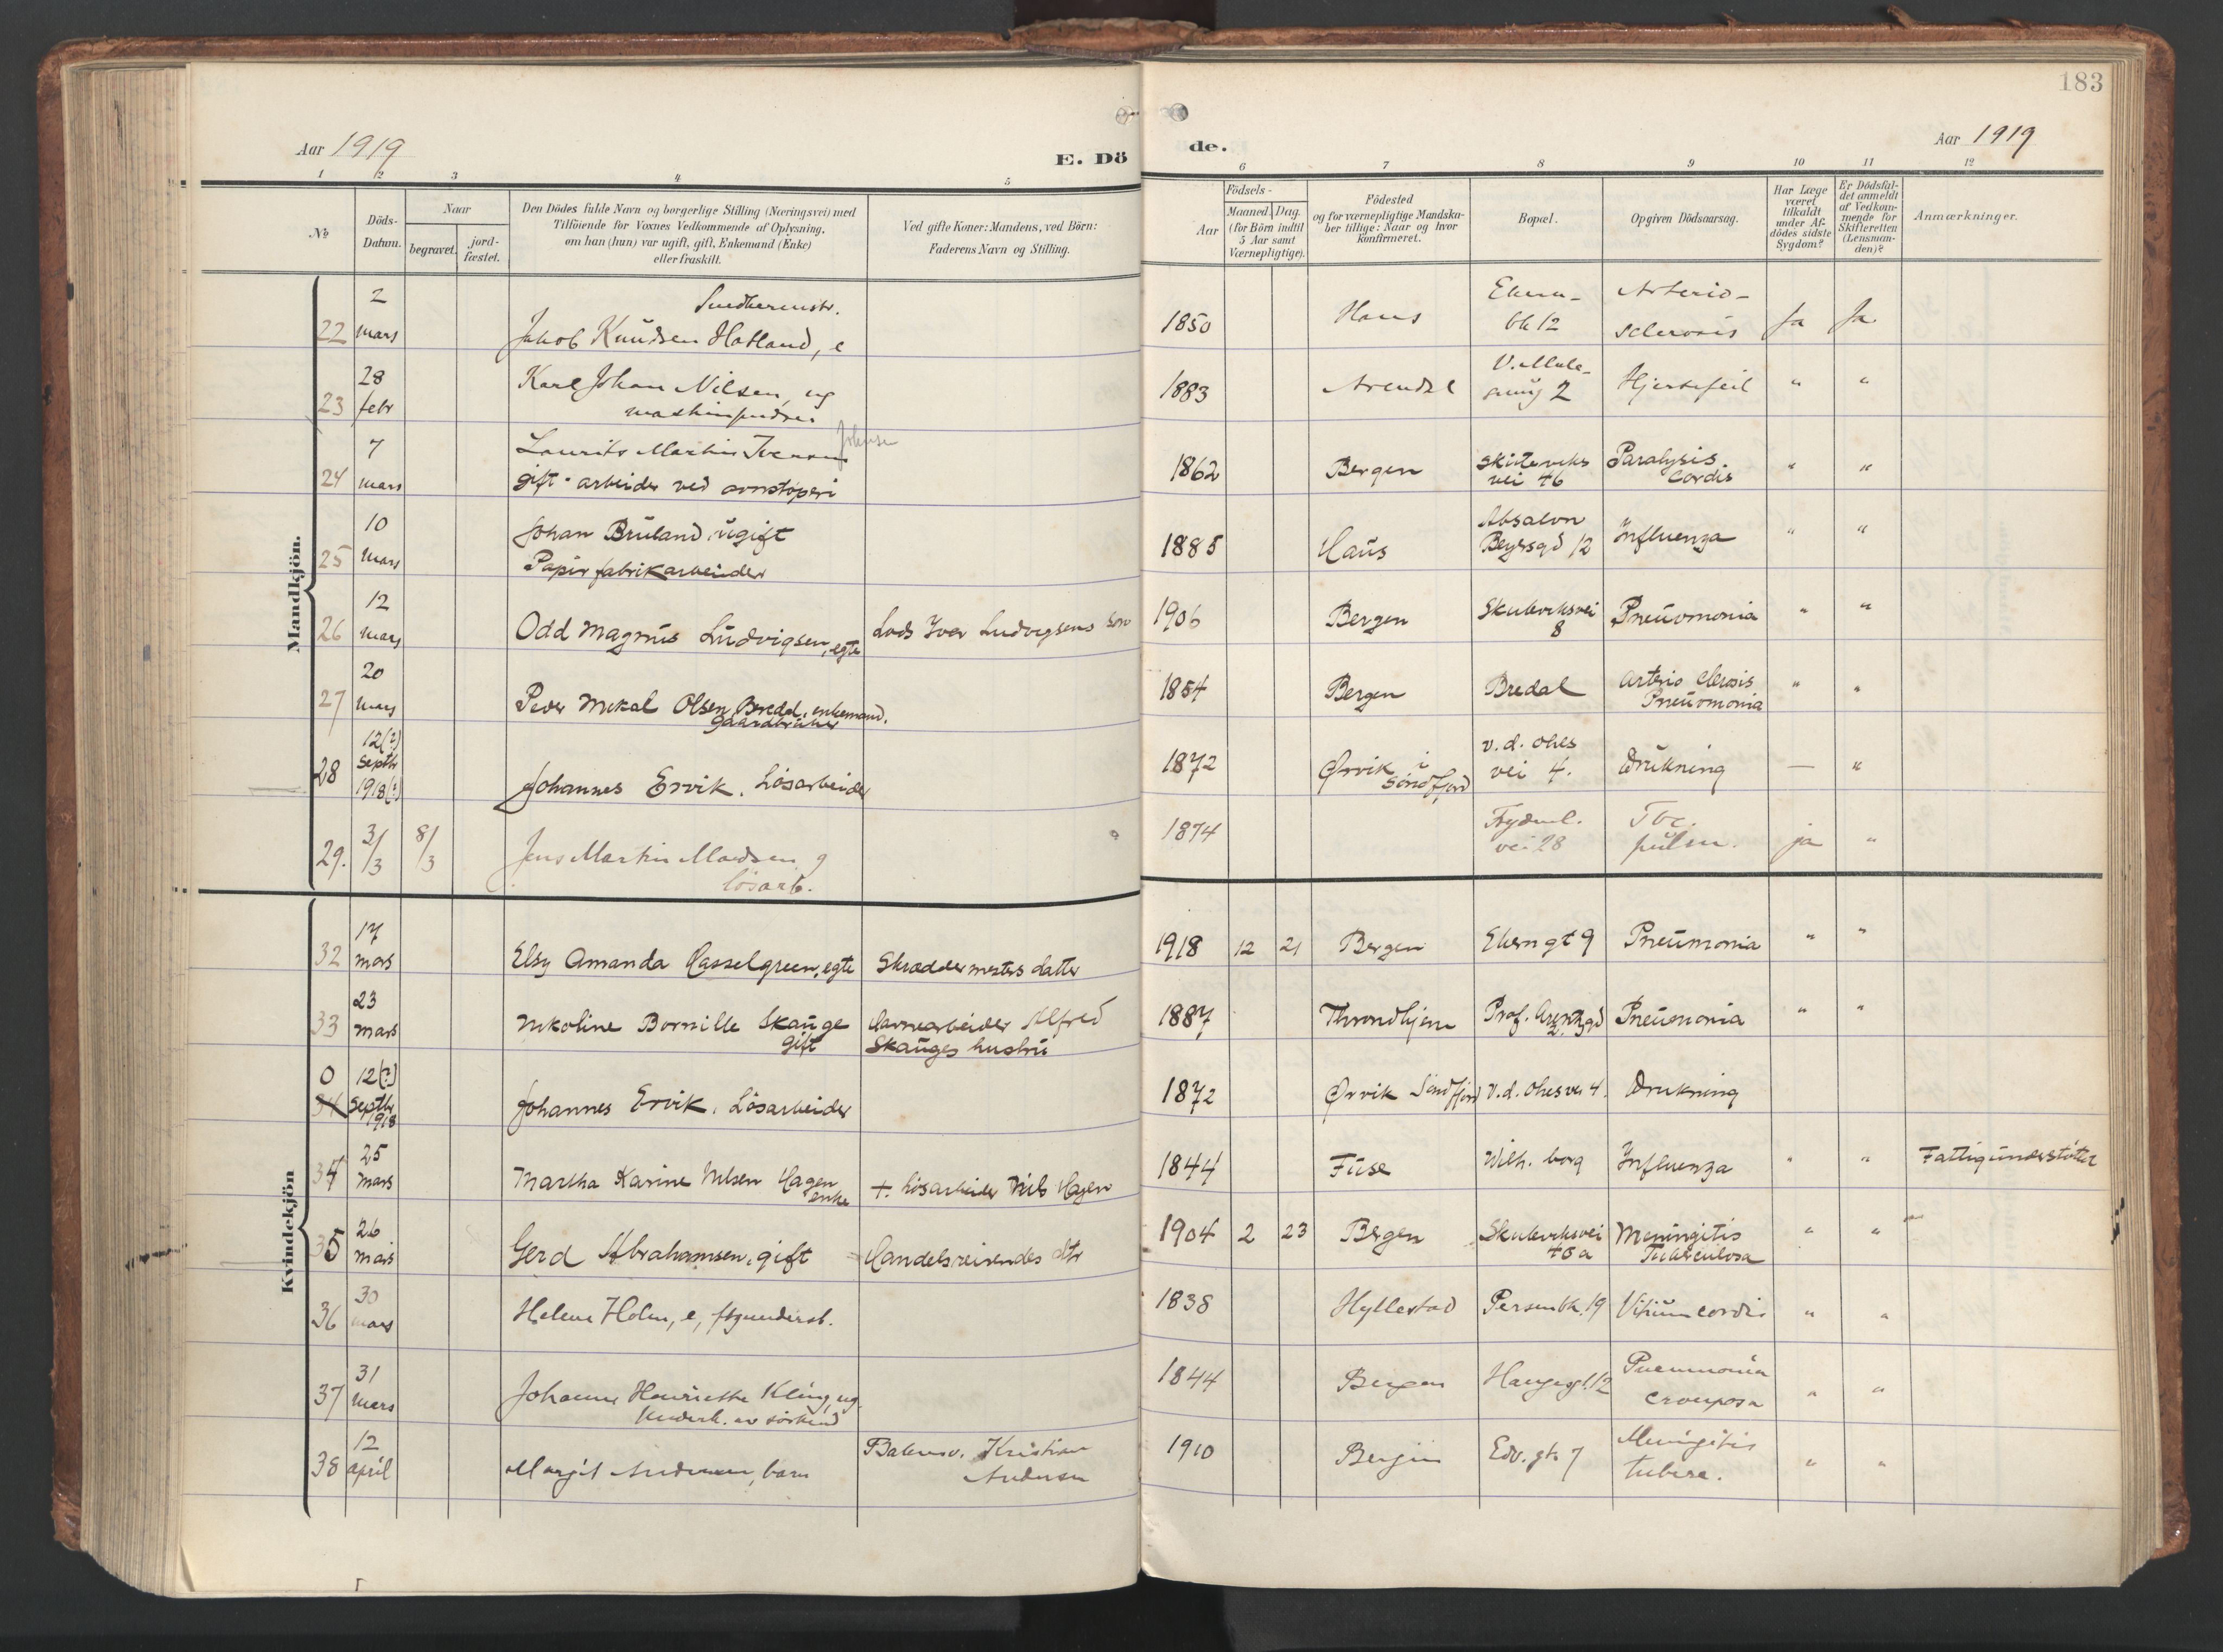 183
Aar 1919
E. Dö
de.
Aar 1919
1 2 3 4 5
6 7 8 9 10 11 12
№
Döds-
Datum.
Naar
begravet.
jord-
fæstet.
Den Dödes fulde Navn og borgerlige Stilling (Næringsvei) med
Tilföiende for Voxnes Vedkommende af Oplysning,
om han (hun) var ugift, gift, Enkemand (Enke)
eller fraskilt.
Ved gifte Koner: Mandens, ved Börn:
Faderens Navn og Stilling.
Födsels-
Aar
Maaned. Dag.
(for Börn indtil
5 Aar samt
Værnepligtige).
Födested
og for værnepligtige Mandska-
ber tillige: Naar og hvor
konfirmeret.
Bopæl.
Opgiven Dödsaarsag.
Har Læge
været
tilkaldt
under Af-
dödes sidste
Sygdom?
Er Dödsfal-
det anmeldt
af Vedkom-
mende for
Skifteretten
(Lensman-
den)?
Anmærkninger.
Mandkjön.
22 2 mars
Snedkermstr.
Jakob Knudsen Hatland, e
1850 Haus
bk 12
Arterio-
sclerosis
Ja Ja
23 28 febr
Karl Johan Nilsen, ug
1883 Arendal
V. Mule-
2
Hjertefeil " "
24 7 mars
Laurits Martin Iversen Johnsen
gift - arbeider ved ovnstøperi
1862 Bergen
Skuteviks
vei 46
Paralysis
Cordis
" "
25 10 mars
Johan Bruland, ugift
Papirfabrikarbeider
1885 Haus
Absalon
Beyersgd 12
Influenza " "
26 12 mars
Odd Magnus Ludvigsen, egte
Lods Iver Ludvigsens søn
1906 Bergen
Skuteviksvei
8
Pneumonia " "
27 20 mars
Peder Mikal Olsen Bredal, enkemand.
Gaardbruker
1854 Bergen Bredal
Arterio sclerosis
Pneumonia
" "
28 12(?)
Septbr
1918(?)
Johannes Ervik. Løsarbeider
1872
Ørvik i
Søndfjord
v. d. Ohes
vei 4.
Drukning — "
29. 3/3 8/3
Jens Martin Madsen g
løsarb.
1874
vei 28
Tbc.
pulm.
ja "
Kvindekjön
32 17 mars
Elsy Amanda Casselgreen, egte
Skræddermesters datter
1918 12 21 Bergen Ekerngt 9 Pneumonia " "
33 23 mars
Nikoline Bornille Skauge
gift
Havnearbeider Alfred
Skauges hustru
1887 Throndhjem
Prof. Arentzgd
2.
Pneumonia " "
0 34 12(?)
Septbr
1918
Johannes Ervik. Løsarbeider
1872 Ørvik Søndfjord V. d. Ohesvei 4. Drukning
34 25 mars
Martha Karine Nilsen Hagen
enke
+. Løsarbeider Nils Hagen
1844 Fuse Wilh. borg Influenza " " Fattigunderstøttet
35 26 mars
Gerd Abrahamsen, gift
Handelsreisendes dtr
1904 2 23 Bergen
Skuteviksvei
48a
Meningitis
Tuberculosa
" "
36 30 mars
Helene Holm, e, ftgunderst.
1838 Hyllestad Persenbk. 19 Vitium cordis " "
37 31 mars
Johanne Henriette Kling, ug.
Underh. av søskend
1844 Bergen Haugegt. 12
Pneumonia
crouposa
" "
38 12 april
Margit Andersen, barn
Kristian
Andersen
1910 Bergen Edv. gt. 7
Meningitis
tuberc.
" "